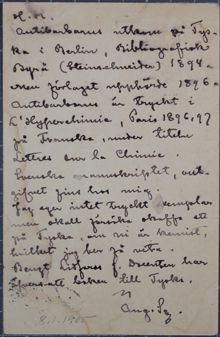 H. A.
Antibarbarus utkom på Tys-
ka i Berlin, Bibliografisch
Byrå (Steinschneider) 1894
Men förlaget upphörde 1896
Antibarbarus är tryckt i
L'Hyperchimie, Paris 1896, 97
på Franska, under titeln
Lettres sur la Chimie.
Svenska manuskriptet, out-
gifvet fins hos mig
Jag eger intet tryckt exemplar
men skall försöka skaffa ett
på Tyska, om ni är kemist,
hvilket jag ber få veta.
Bengt Lidforss f. Docenten har
öfversatt boken till Tyska.
Aug. Sg.
8/1 1905